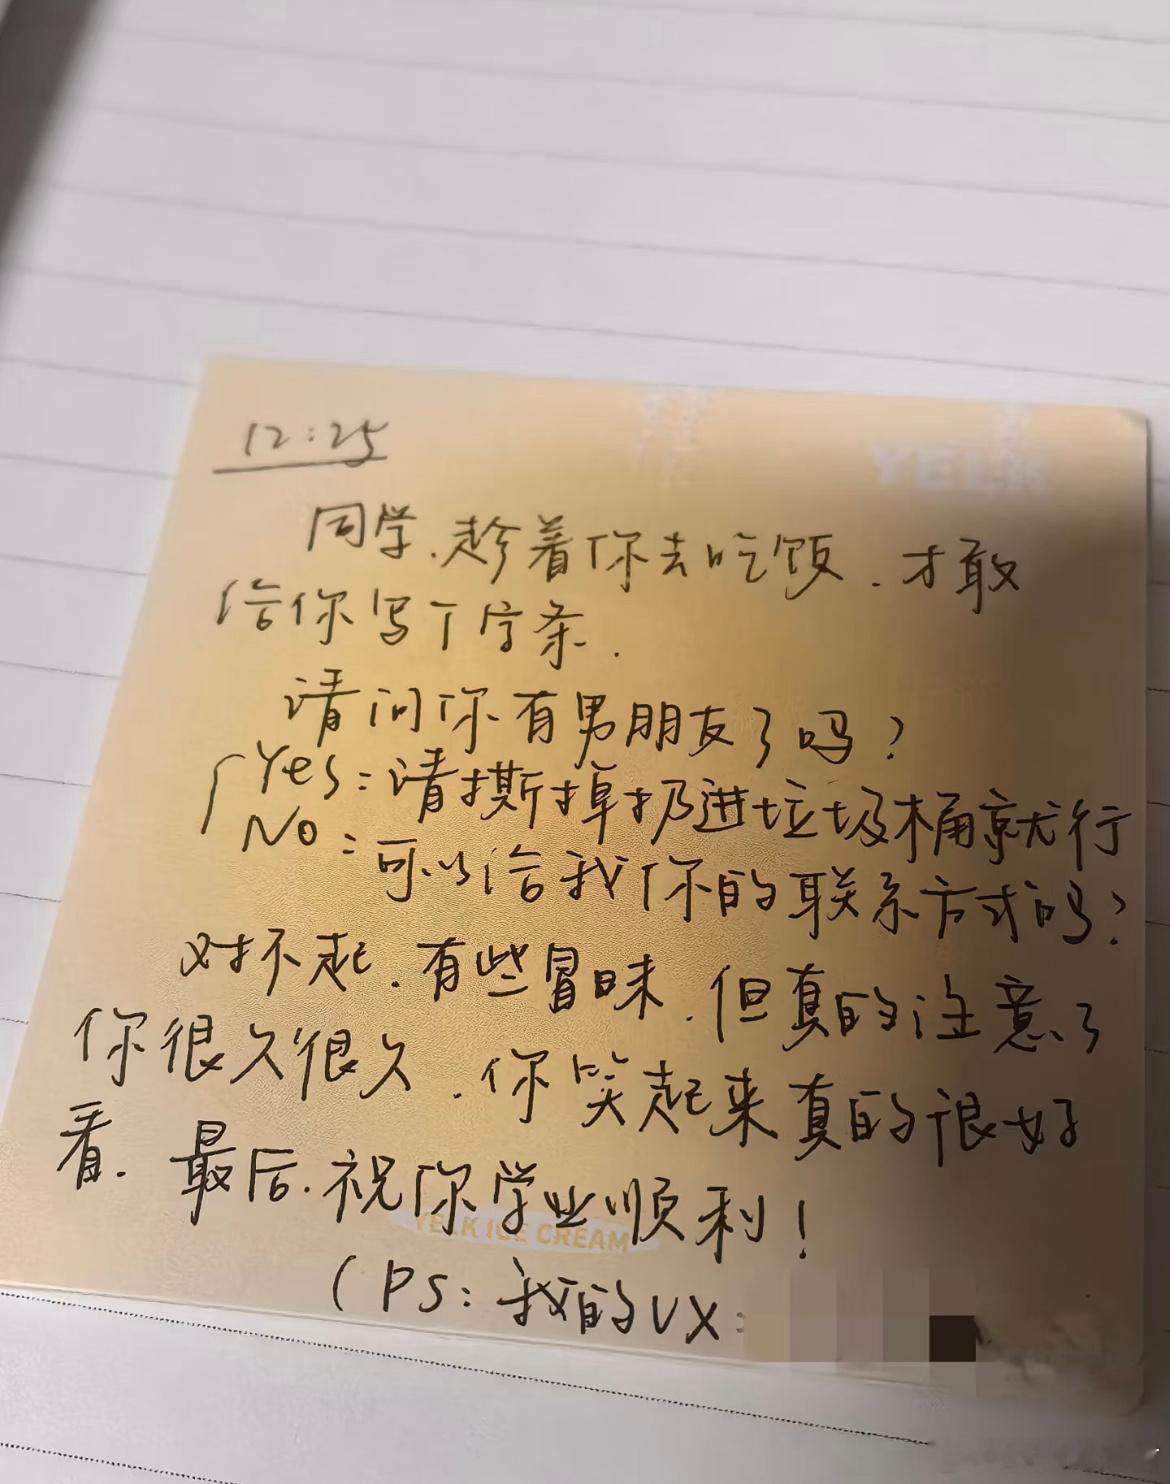 YELK
12:25
同学,趁着你去吃饭,才敢
给你写下字条.
请问你有男朋友了吗?
Yes:请撕掉扔进垃圾桶就行
No:可以给我你的联系方式吗?
对不起,有些冒昧,但真的注意了
你很久很久,你笑起来真的很好
看.最后,祝你学业顺利!
YELK ICE CREAM
(PS:我的VX: